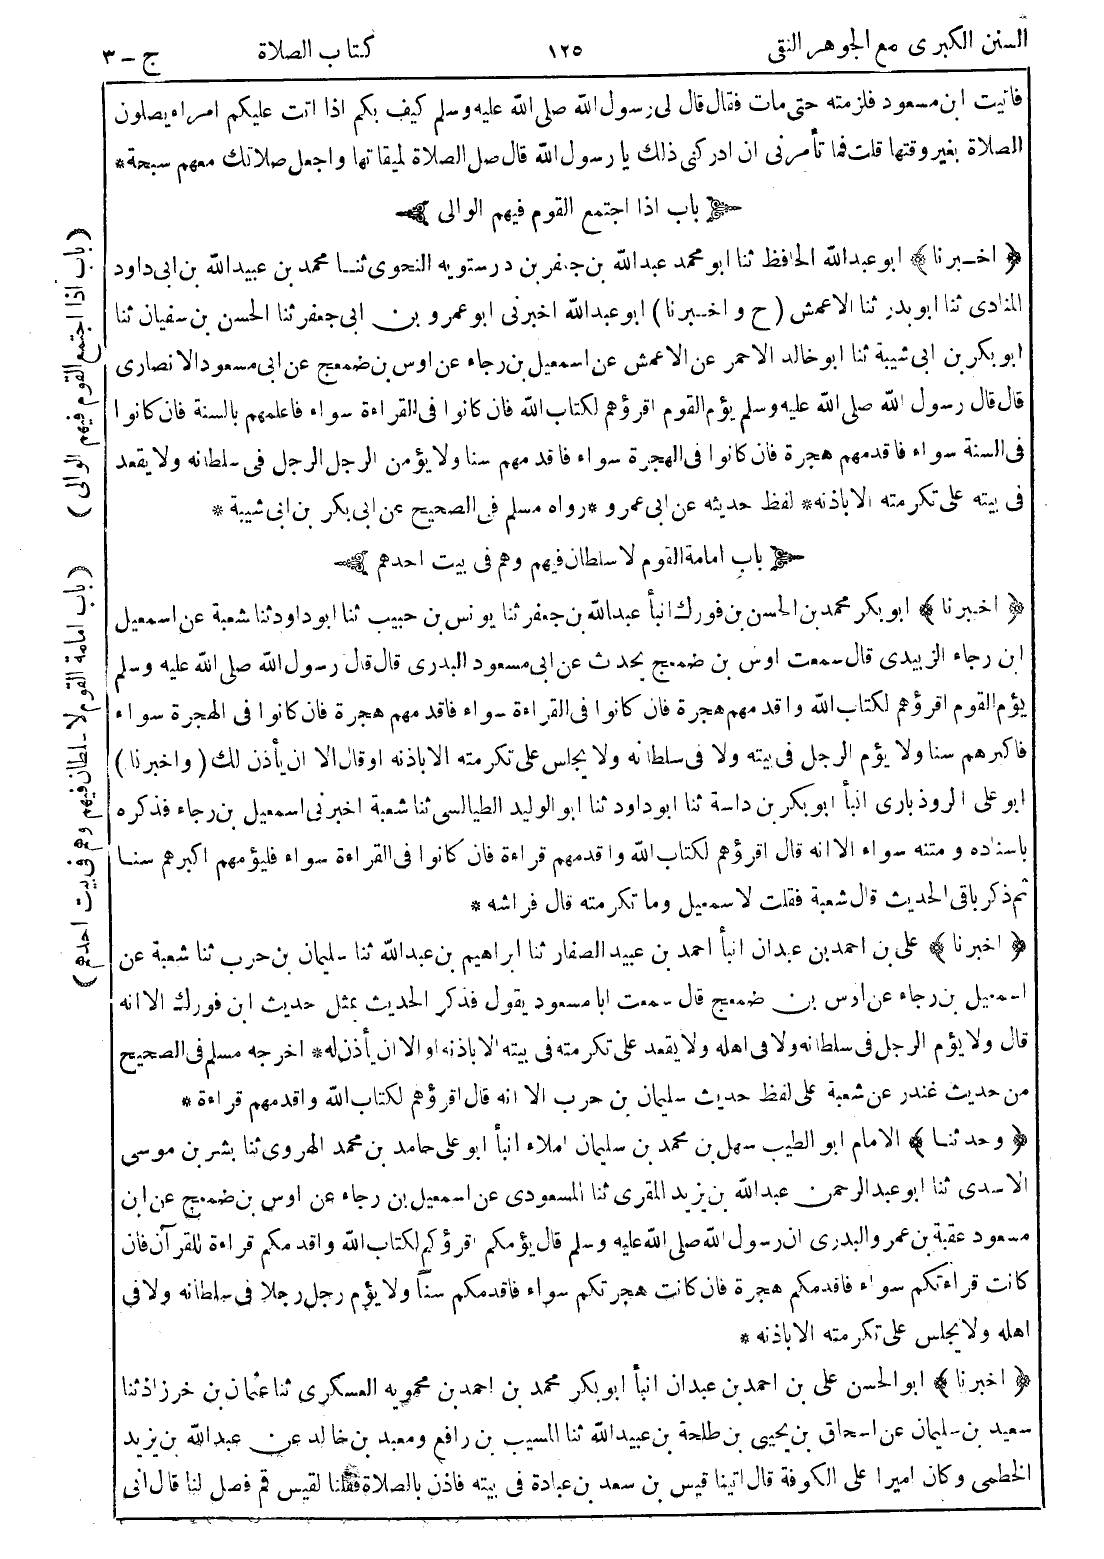 السنن الكبرى مع الجوهر النقى ١٢٥ كتاب الصلاة ج - ٣
فاتيت ابن مسعود فلزمته حتى مات فقال قال لى رسول الله صلى الله عليه وسلم كيف بكم اذا اتت عليكم امراء يصلون
الصلاة بغير وقتها قلت فما تأمرنى ان ادركنى ذلك يا رسول الله قال صل الصلاة لميقاتها واجعل صلاتك معهم سبحة *
باب اذا اجتمع القوم فيهم الوالى
﴿ اخبرنا ﴾ ابو عبد الله الحافظ ثنا ابو محمد عبد الله بن جعفر بن درستويه النحوى ثنا محمد بن عبيد الله بن ابى داود
المنادى ثنا ابو بدر ثنا الاعمش ( ح و اخبرنا ) ابو عبد الله اخبرنى ابو عمرو بن ابى جعفر ثنا الحسن بن سفيان ثنا
ابو بكر بن ابى شيبة ثنا ابو خالد الاحمر عن الاعمش عن اسمعيل بن رجاء عن اوس بن ضمعج عن ابى مسعود الانصارى
قال قال رسول الله صلى الله عليه وسلم يؤم القوم اقرؤهم لكتاب الله فان كانوا فى القراءة سواء فاعلمهم بالسنة فان كانوا
فى السنة سواء فاقدمهم هجرة فان كانوا فى الهجرة سواء فاقدمهم سنا ولا يؤمن الرجل الرجل فى سلطانه ولا يقعد
فى بيته على تكرمته الا باذنه * لفظ حديثه عن ابى عمرو * رواه مسلم فى الصحيح عن ابى بكر بن ابى شيبة *
باب امامة القوم لا سلطان فيهم وهم فى بيت احدهم
﴿ اخبرنا ﴾ ابو بكر محمد بن الحسن بن فورك انبأ عبد الله بن جعفر ثنا يونس بن حبيب ثنا ابو داود ثنا شعبة عن اسمعيل
ابن رجاء الزبيدى قال سمعت اوس بن ضمعج يحدث عن ابى مسعود البدرى قال قال رسول الله صلى الله عليه وسلم
يؤم القوم اقرؤهم لكتاب الله واقدمهم هجرة فان كانوا فى القراءة سواء فاقدمهم هجرة فان كانوا فى الهجرة سواء
فاكبرهم سنا ولا يؤم الرجل فى بيته ولا فى سلطانه ولا يجلس على تكرمته الا باذنه او قال الا ان يأذن لك ( واخبرنا )
ابو على الروذبارى انبأ ابو بكر بن داسة ثنا ابو داود ثنا ابو الوليد الطيالسى ثنا شعبة اخبرنى اسمعيل بن رجاء فذكره
باسناده و متنه سواء الا انه قال اقرؤهم لكتاب الله واقدمهم قراءة فان كانوا فى القراءة سواء فليؤمهم اكبرهم سنا
ثم ذكر باقى الحديث قال شعبة فقلت لاسمعيل وما تكرمته قال فراشه *
﴿ اخبرنا ﴾ على بن احمد بن عبدان انبأ احمد بن عبيد الصفار ثنا ابراهيم بن عبد الله ثنا سليمان بن حرب ثنا شعبة عن
اسمعيل بن رجاء عن اوس بن ضمعج قال سمعت ابا مسعود يقول فذكر الحديث بمثل حديث ابن فورك الا انه
قال ولا يؤم الرجل فى سلطانه ولا فى اهله ولا يقعد على تكرمته فى بيته الا باذنه او الا ان يأذن له * اخرجه مسلم فى الصحيح
من حديث غندر عن شعبة على لفظ حديث سليمان بن حرب الا انه قال اقرؤهم لكتاب الله واقدمهم قراءة *
﴿ وحدثنا ﴾ الامام ابو الطيب سهل بن محمد بن سليمان املاء انبأ ابو على حامد بن محمد الهروى ثنا بشر بن موسى
الاسدى ثنا ابو عبد الرحمن عبد الله بن يزيد المقرى ثنا المسعودى عن اسمعيل بن رجاء عن اوس بن ضمعج عن ابن
مسعود عقبة بن عمرو البدرى ان رسول الله صلى الله عليه وسلم قال يؤمكم اقرؤكم لكتاب الله واقدمكم قراءة للقرآن فان
كانت قراءتكم سواء فاقدمكم هجرة فان كانت هجرتكم سواء فاقدمكم سنا ولا يؤم رجل رجلا فى سلطانه ولا فى
اهله ولا يجلس على تكرمته الا باذنه *
﴿ اخبرنا ﴾ ابو الحسن على بن احمد بن عبدان انبأ ابو بكر محمد بن احمد بن محمويه العسكرى ثنا عثمان بن خرزاذ ثنا
سعيد بن سليمان عن اسحاق بن يحيى بن طلحة بن عبيد الله ثنا المسيب بن رافع ومعبد بن خالد عن عبد الله بن يزيد
الخطمى وكان اميرا على الكوفة قال اتينا قيس بن سعد بن عبادة فى بيته فاذن بالصلاة فقلنا لقيس قم فصل لنا قال انى
( باب اذا اجتمع القوم فيهم الوالى )
( باب امامة القوم لا سلطان فيهم وهم فى بيت احدهم )